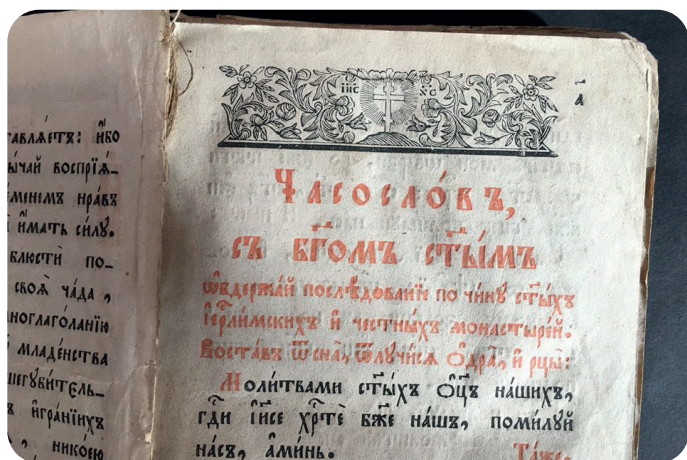 тавлѧ́етъ: и҆́бо
ы́чай воспрїѧ̀-
и҆́менемъ нра́въ
и҆́мать си́лꙋ.
блюстѝ по-
своѧ̀ ча́да,
многлаго́ланїю
младе́нства
шегꙋби́тель-
и҆гра́нїихъ
нико́ею
і҆и҃с х҃с
а҃
Часосло́въ,
съ бг҃омъ ст҃ы́мъ
ѡ҆бдержа́й послѣ́дованїе по чи́нꙋ ст҃ы́хъ
і҆ерⷭ҇ли́мскихъ и҆ честны́хъ монастыре́й.
Воста́въ ѿ сна̀, ѿлꙋчи́сѧ ѻ҆дра̀, и҆ рцы̀:
Моли́твами ст҃ы́хъ ѻ҆ц҃ъ на́шихъ,
гдⷭ҇и і҆и҃се хрⷭ҇тѐ бж҃е на́шъ, поми́лꙋй
на́съ, а҆ми́нь. Та́же,